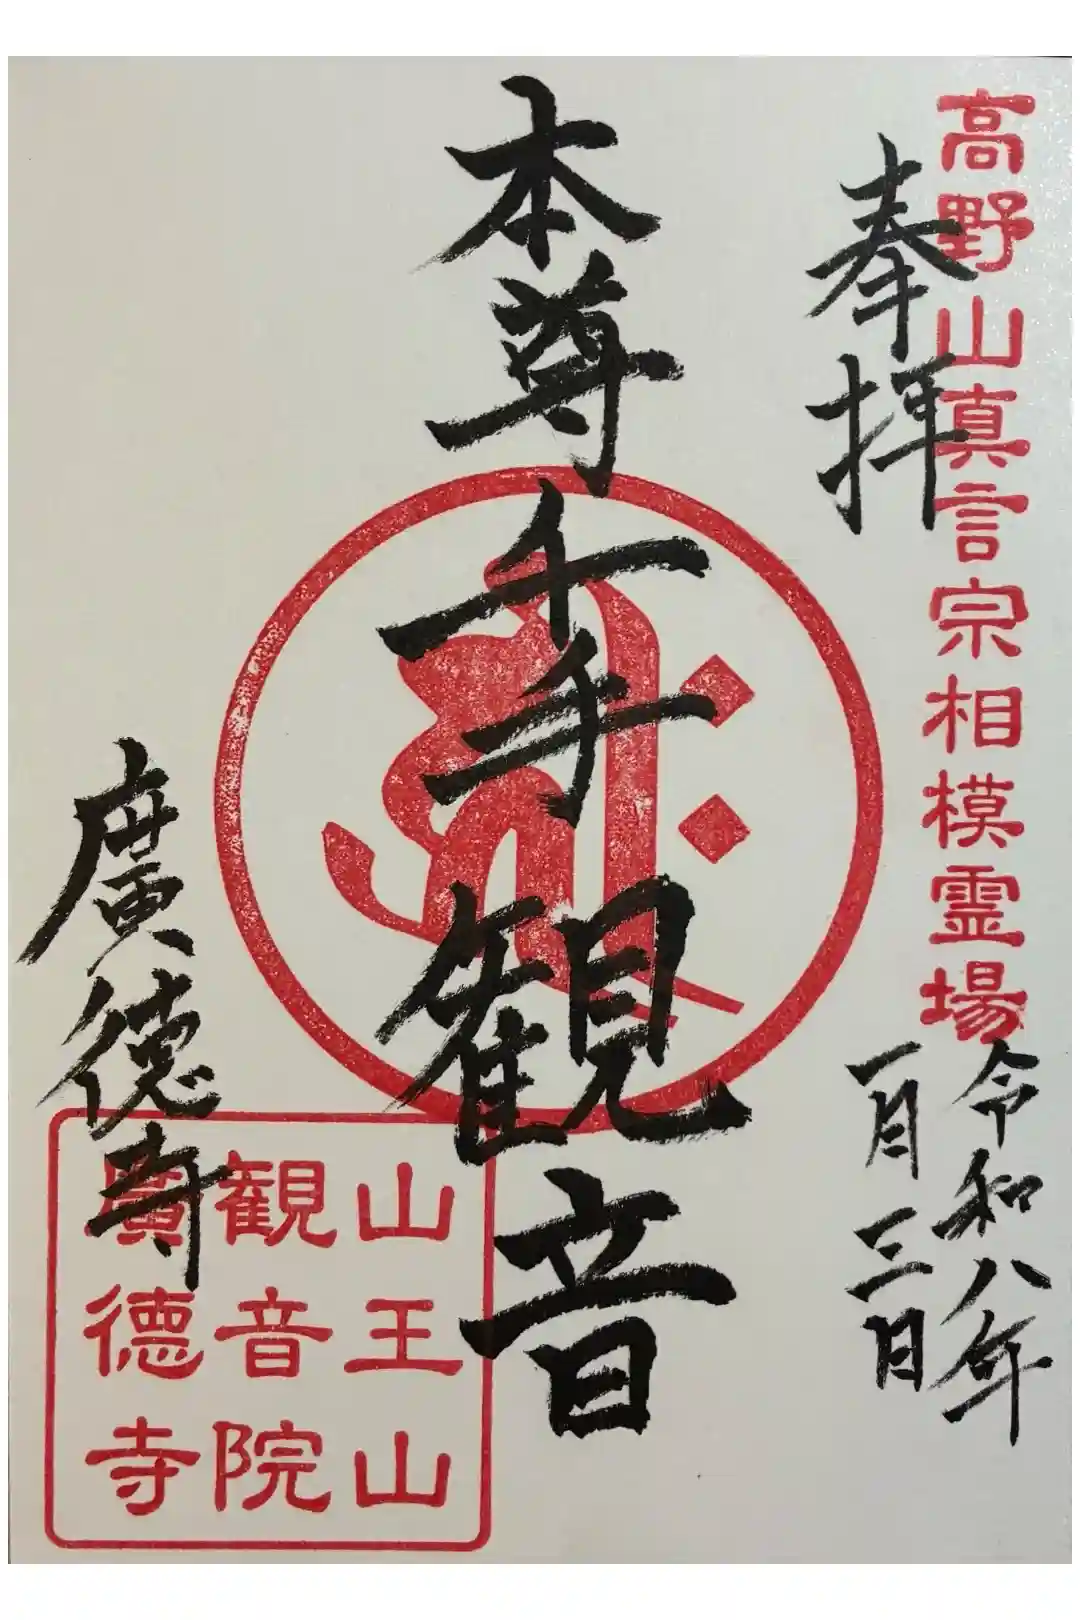 高野山真言宗相模霊場
奉拝
令和八年
一月三日
本尊千手観音
廣徳寺
山王山
観音院
廣徳寺